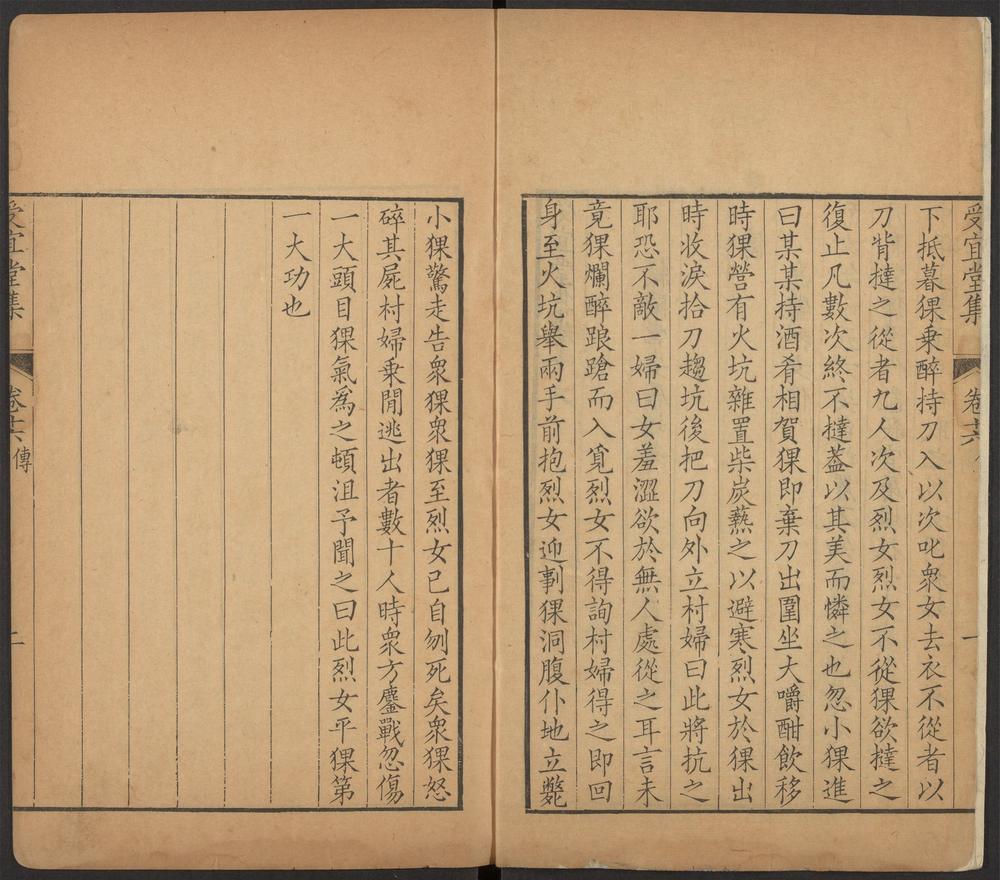 受宜堂集 卷廿六 一
下抵暮猓乗醉持刀入以次叱衆女去衣不從者以
刀背撻之從者九人次及烈女烈女不從猓欲撻之
復止凡數次終不撻葢以其美而憐之也忽小猓進
曰某某持酒肴相賀猓即棄刀出圍坐大嚼酣飲移
時猓營有火坑雜置柴炭爇之以避寒烈女於猓出
時收淚拾刀趨坑後把刀向外立村婦曰此將抗之
耶恐不敵一婦曰女羞澀欲於無人處從之耳言未
竟猓爛醉踉蹌而入覓烈女不得詢村婦得之即回
身至火坑舉兩手前抱烈女迎剚猓洞腹仆地立斃
小猓驚走告衆猓衆猓至烈女已自刎死矣衆猓怒
碎其屍村婦乗閒逃出者數十人時衆方鏖戰忽傷
一大頭目猓氣爲之頓沮予聞之曰此烈女平猓第
一大功也
受宜堂集 卷廿六 傳 二